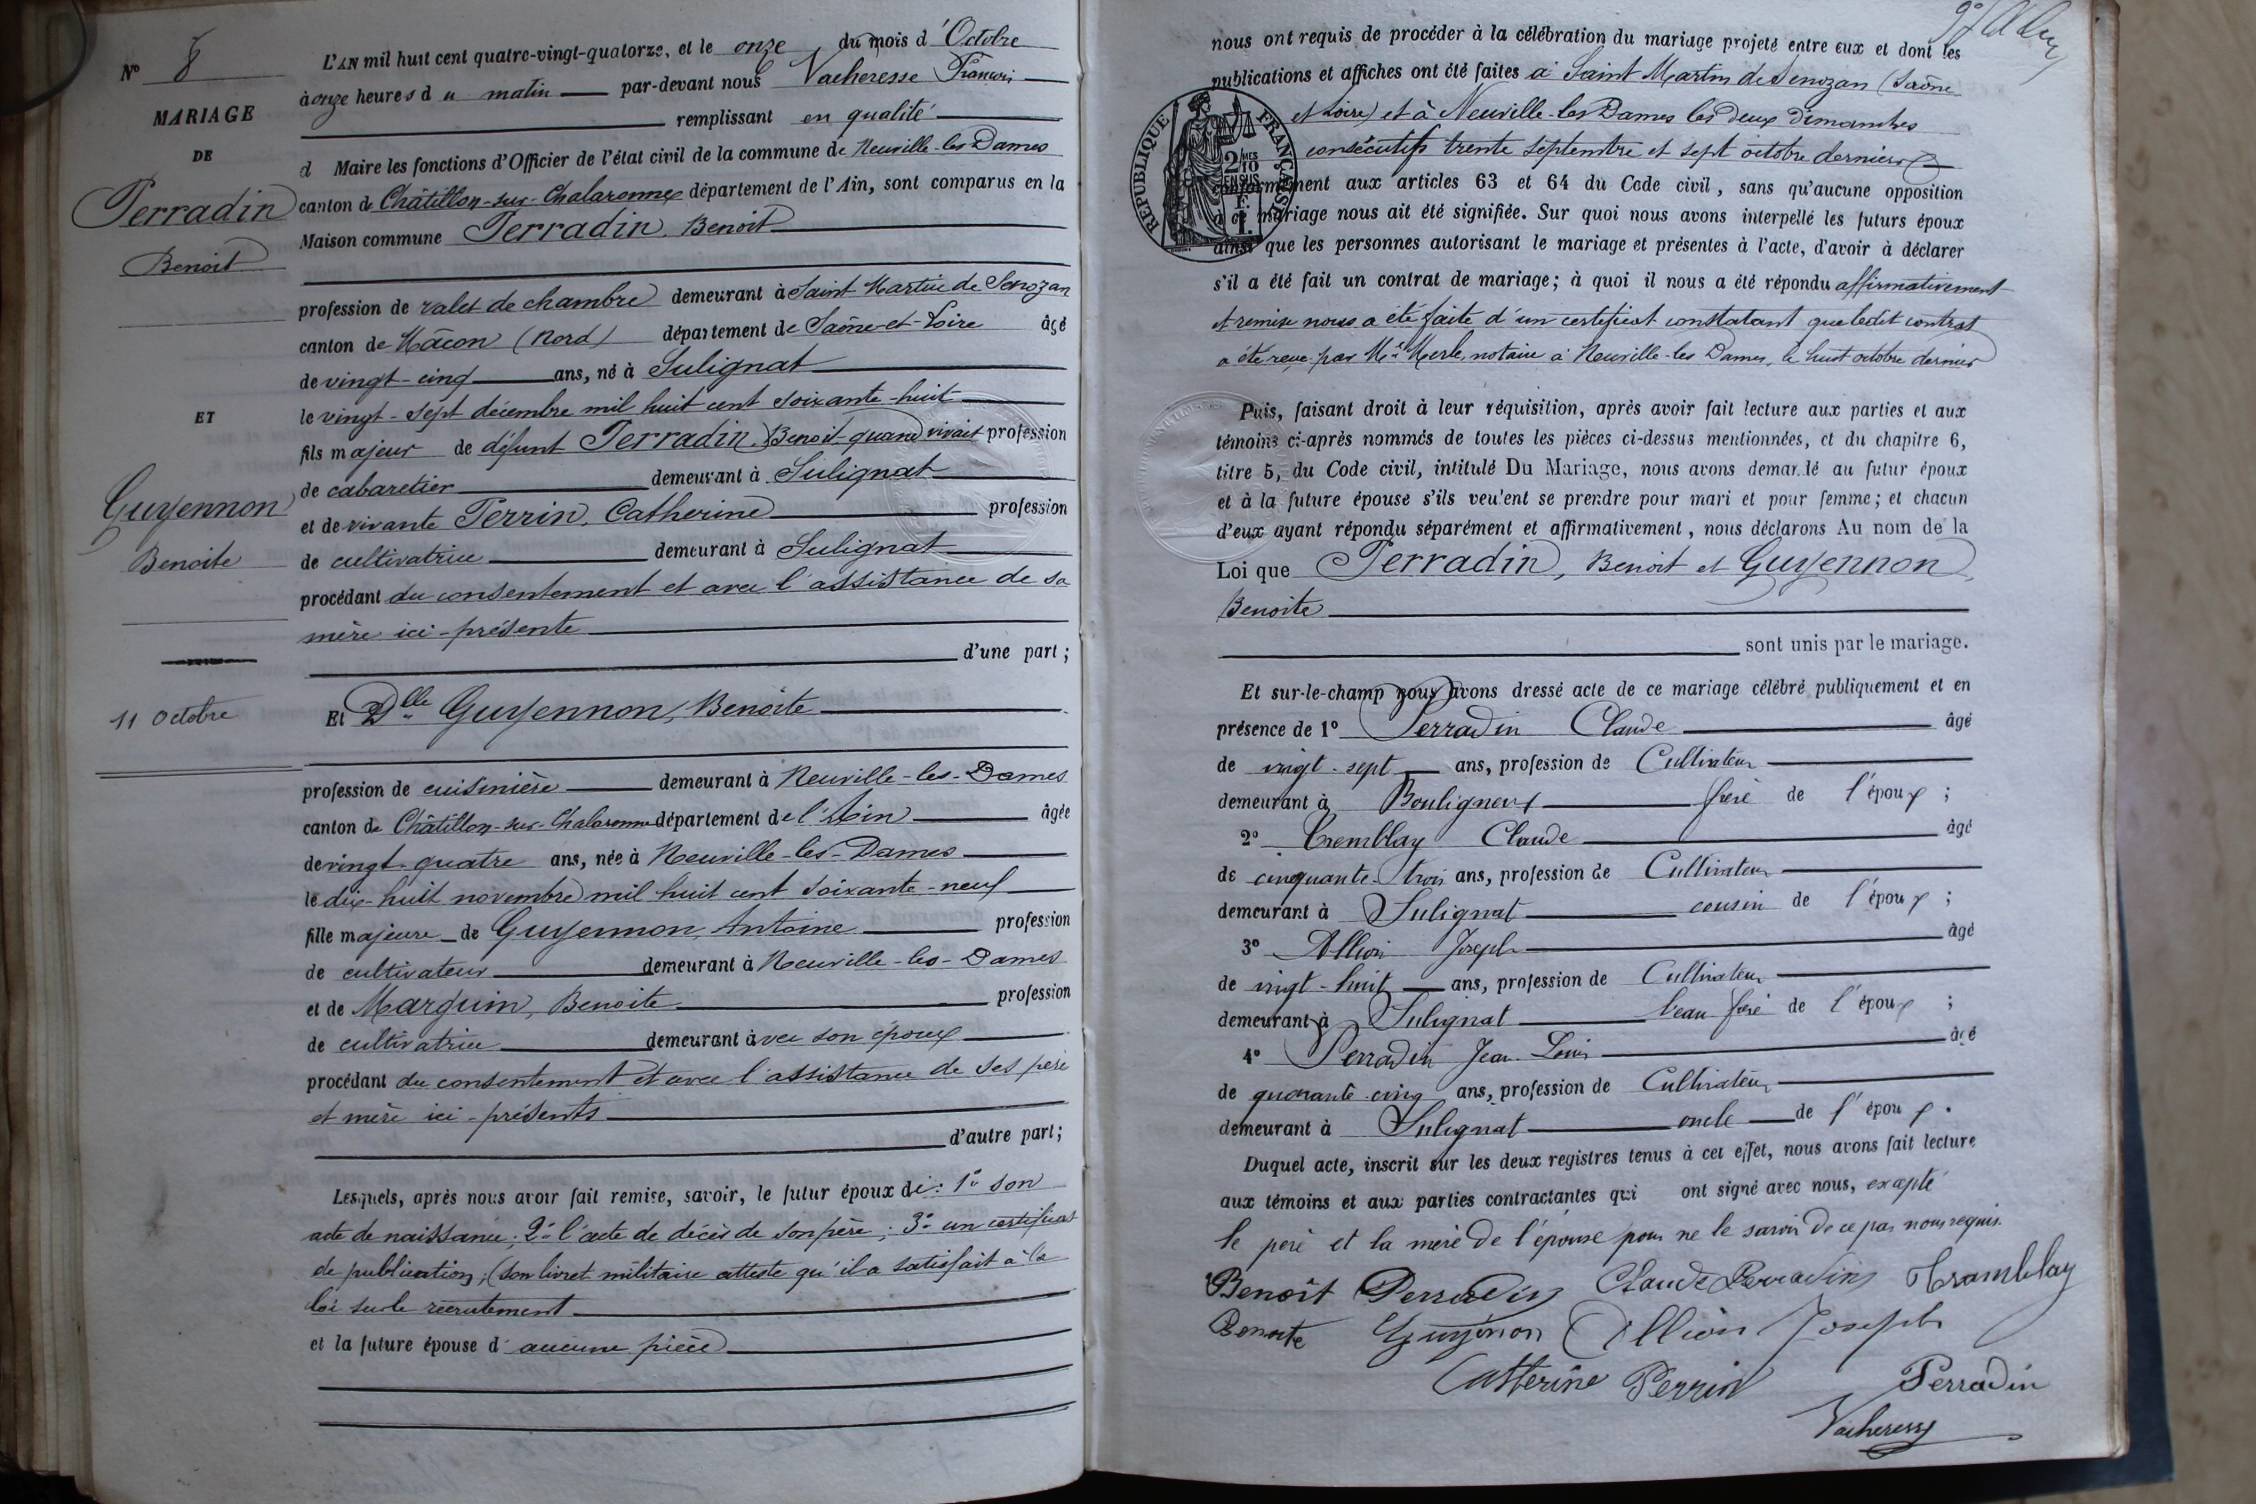 N° 8
MARIAGE
DE
Perradin
Benoit
ET
Guyennon
Benoite
11 Octobre
L'AN mil huit cent quatre-vingt-quatorze, et le onze du mois d'Octobre
à onze heures du matin par-devant nous Vacheresse François
remplissant en qualité
d Maire les fonctions d'Officier de l'état civil de la commune de Neuville-les-Dames
canton de Châtillon-sur-Chalaronne département de l'Ain, sont comparus en la
Maison commune Perradin, Benoit
profession de valet de chambre demeurant à Saint Martin de Senozan
canton de Mâcon (Nord) département de Saône-et-Loire âgé
de vingt-cinq ans, né à Sulignat
le vingt-sept décembre mil huit cent soixante-huit
fils majeur de défunt Perradin, Benoit quand vivait profession
de cabaretier demeurant à Sulignat
et de vivante Perrin, Catherine profession
de cultivatrice demeurant à Sulignat
procédant du consentement et avec l'assistance de sa
mère ici-présente
d'une part;
Et Dlle Guyennon, Benoite
profession de cuisinière demeurant à Neuville-les-Dames
canton de Châtillon-sur-Chalaronne département de l'Ain âgée
de vingt-quatre ans, née à Neuville-les-Dames
le dix-huit novembre mil huit cent soixante-neuf
fille majeure de Guyennon, Antoine profession
de cultivateur demeurant à Neuville-les-Dames
et de Marguin, Benoite profession
de cultivatrice demeurant avec son époux
procédant du consentement et avec l'assistance de ses père
et mère ici-présents
d'autre part;
Lesquels, après nous avoir fait remise, savoir, le futur époux de: 1° son
acte de naissance; 2° l'acte de décès de son père; 3° un certificat
de publication; (son livret militaire atteste qu'il a satisfait à la
loi sur le recrutement
et la future épouse d'aucune pièce
nous ont requis de procéder à la célébration du mariage projeté entre eux et dont les
publications et affiches ont été faites à Saint Martin de Senozan (Saône
et Loire) et à Neuville-les-Dames les deux dimanches
consécutifs trente septembre et sept octobre derniers
conformément aux articles 63 et 64 du Code civil, sans qu'aucune opposition
à ce mariage nous ait été signifiée. Sur quoi nous avons interpellé les futurs époux
ainsi que les personnes autorisant le mariage et présentes à l'acte, d'avoir à déclarer
s'il a été fait un contrat de mariage; à quoi il nous a été répondu affirmativement
et remise nous a été faite d'un certificat constatant que ledit contrat
a été reçu par Me Merle, notaire à Neuville-les-Dames, le huit octobre dernier
RÉPUBLIQUE FRANÇAISE
2/10 MES
EN SUS
1 F.
Puis, faisant droit à leur réquisition, après avoir fait lecture aux parties et aux
témoins ci-après nommés de toutes les pièces ci-dessus mentionnées, et du chapitre 6,
titre 5, du Code civil, intitulé Du Mariage, nous avons demandé au futur époux
et à la future épouse s'ils veulent se prendre pour mari et pour femme; et chacun
d'eux ayant répondu séparément et affirmativement, nous déclarons Au nom de la
Loi que Perradin, Benoit et Guyennon,
Benoite
sont unis par le mariage.
Et sur-le-champ nous avons dressé acte de ce mariage célébré publiquement et en
présence de 1° Perradin Claude âgé
de vingt-sept ans, profession de Cultivateur
demeurant à Bouligneux frère de l'époux;
2° Tremblay Claude âgé
de cinquante-trois ans, profession de Cultivateur
demeurant à Sulignat cousin de l'époux;
3° Allion Joseph âgé
de vingt-huit ans, profession de Cultivateur
demeurant à Sulignat beau frère de l'époux;
4° Perradin Jean-Louis âgé
de quarante-cinq ans, profession de Cultivateur
demeurant à Sulignat oncle de l'époux.
Duquel acte, inscrit sur les deux registres tenus à cet effet, nous avons fait lecture
aux témoins et aux parties contractantes qui ont signé avec nous, excepté
le père et la mère de l'épouse pour ne le savoir de ce par nous requis.
Benoît Perradin Claude Perradin Tramblay
Benoite Guyénon Allion Joseph
Catherine Perrin Perradin
Vacheresse